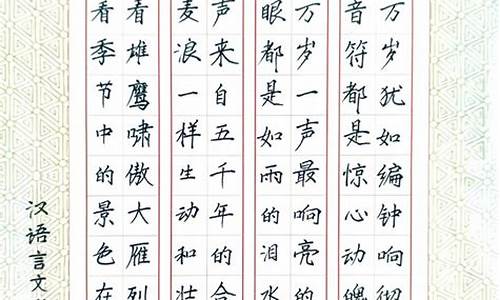 万岁犹如编钟响彻
音符都是惊心动魄
万岁一声最响亮的
眼都是如雨的泪水
声来自五千年的合
麦浪一样生动和壮
看雄鹰啸傲大雁列
看季节中的景色在
汉语言文